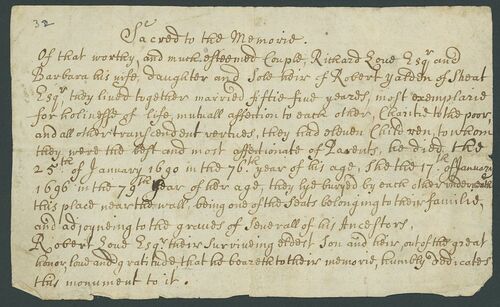 32
Sacred to the Memorie.
Of that worthy, and much esteemed Couple, Richard Love Esqr and
Barbara his wife, daughter and Sole heir of Robert Yalden of Sheat
Esqr, they lived together married fiftie five yeares, most exemplarie
for holinesse of life, mutuall affection to each other, Charitie to the poor,
and all other transcendent vertues, they had eleven Children, to whom
they were the best and most affectionate of Parents, he died the
25th of January 1690 in the 76th year of his age, She the 17th of January
1696 in the 79th year of her age, they lye buryed by each other underneath
this place near the wall, being one of the Seats belonging to their familie,
and adjoyneing to the graves of Severall of his Ancestors,
Robert Love Esqr their Surviveing eldest Son and heir, out of the great
honor, love and gratitude that he beareth to their memorie, humbly dedicates
this monument to it.